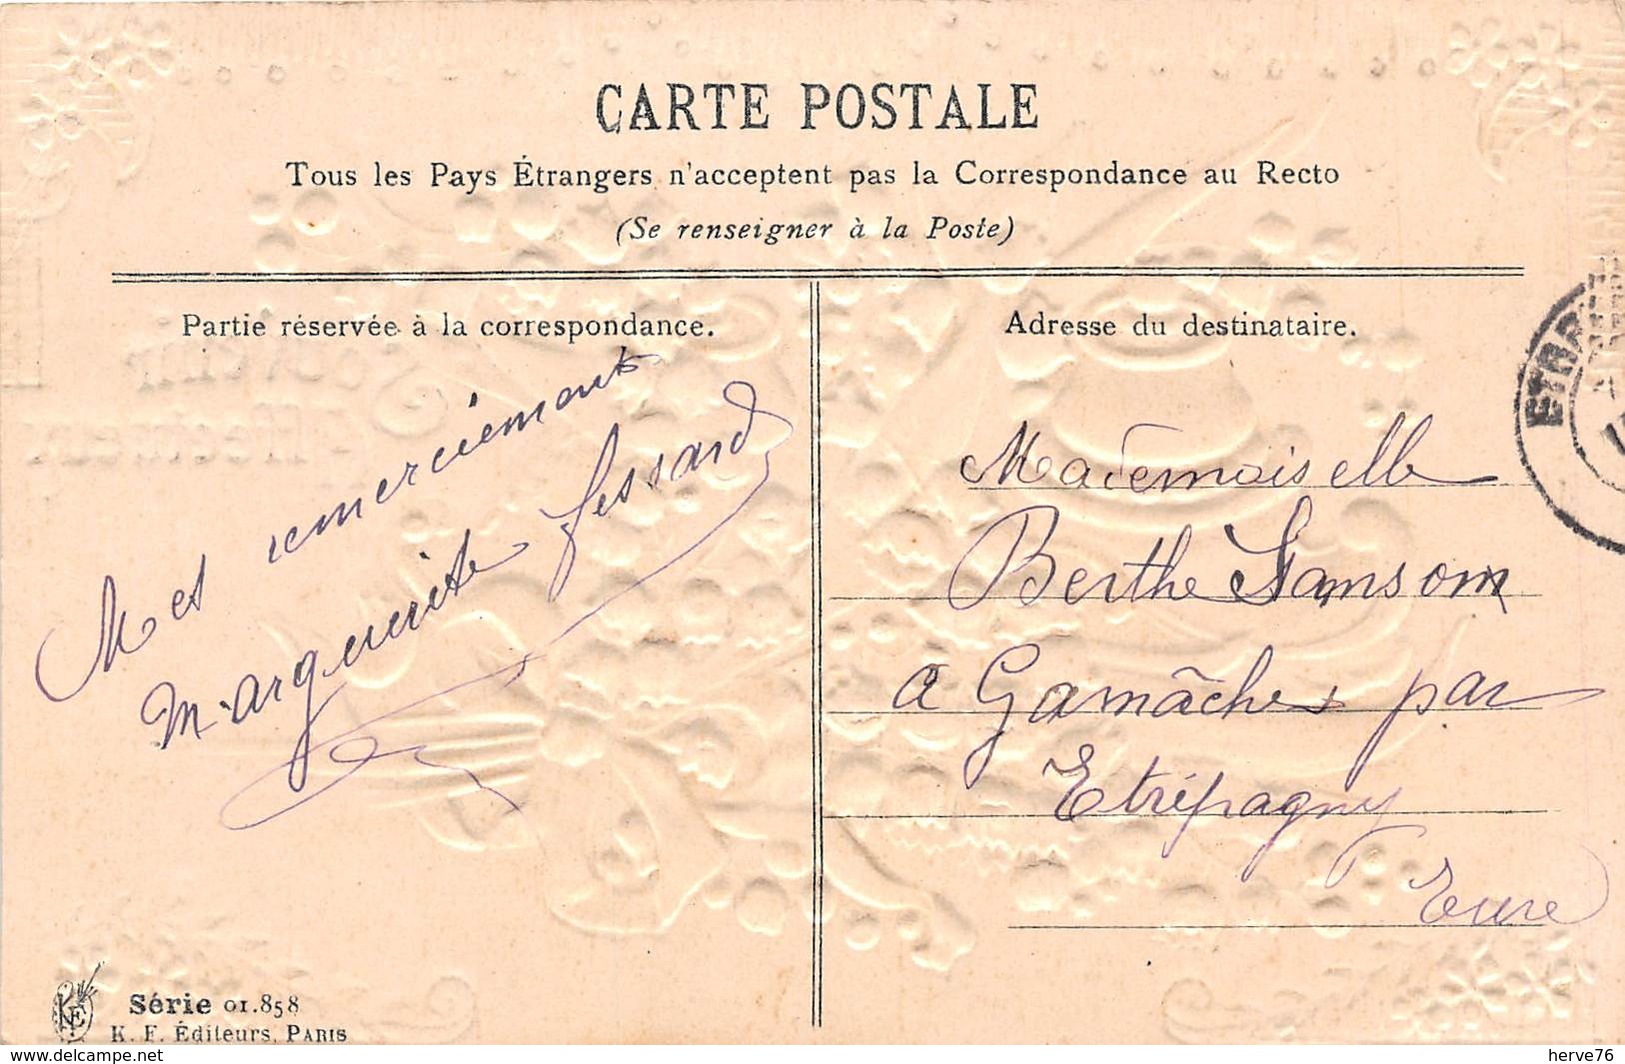 CARTE POSTALE
Tous les Pays Étrangers n'acceptent pas la Correspondance au Recto
(Se renseigner à la Poste)
Partie réservée à la correspondance.
Mes remerciements
Marguerite Lessard
Adresse du destinataire.
Mademoiselle
Berthe Sansom
a Gamâches par
Etrépagny
Eure
Série 01.858
K. F. Éditeurs, PARIS
delcampe.net
herve76